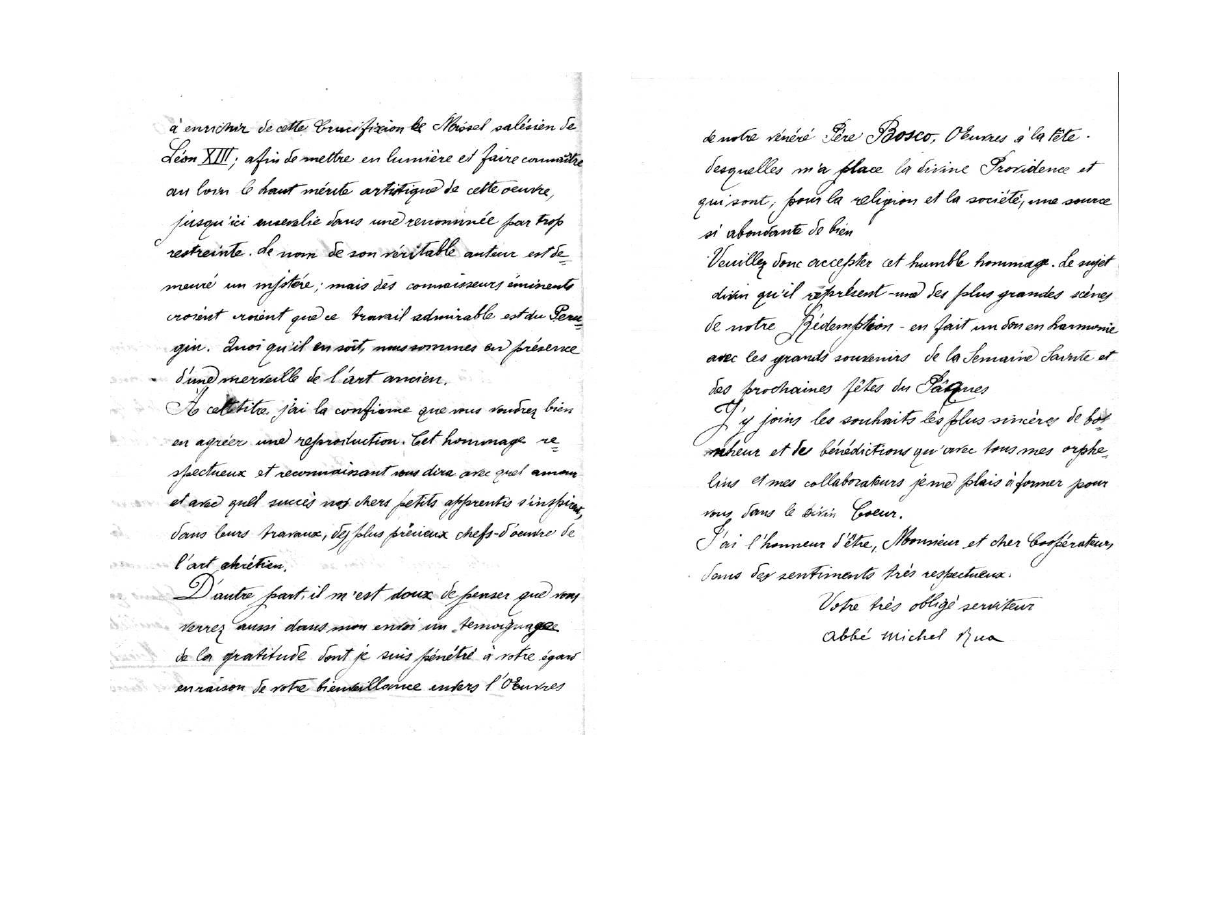 à enrichir de cette Crucifixion le Missel salésien de
Léon XIII; afin de mettre en lumière et faire connaître
au loin le haut mérite artistique de cette oeuvre,
jusqu'ici ensevelie dans une renommée par trop
restreinte. Le nom de son véritable auteur est de=
meuré un mystère; mais des connaisseurs éminents
croient croient que ce travail admirable est du Peru=
gin. Quoi qu'il en soit, nous sommes en présence
d'une merveille de l'art ancien.
A cet titre, j'ai la confiance que vous voudrez bien
en agréer une reproduction. Cet hommage re=
spectueux et reconnaissant vous dira avec quel amour
et avec quel succès nos chers petits apprentis s'inspirent,
dans leurs travaux, des plus précieux chefs-d'oeuvre de
l'art chrétien.
D'autre part, il m'est doux de penser que vous
verrez aussi dans mon envoi un temoignage
de la gratitude dont je suis pénétré à votre égard
en raison de votre bienveillance envers l'Oeuvres
de notre vénéré Père Bosco, Oeuvres à la tête
desquelles m'a place la divine Providence et
qui sont, pour la religion et la société, une source
si abondante de bien
Veuillez donc accepter cet humble hommage. Le sujet
divin qu'il représent - une des plus grandes scènes
de notre Rédemption - en fait un don en harmonie
avec les grands souvenirs de la Semaine Sainte et
des prochaines fêtes du Pâques
J'y joins les souhaits les plus sincères de bon=
nheur et de bénédictions qu'avec tous mes orphe=
lins et mes collaborateurs je me plais à former pour
vous dans le divin Coeur.
J'ai l'honneur d'être, Monsieur et cher Coopérateur,
dans des sentiments très respectueux.
Votre très obligé serviteur
Abbé Michel Rua